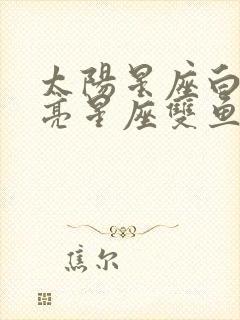 太陽星座白
亮星座雙魚
焦尔